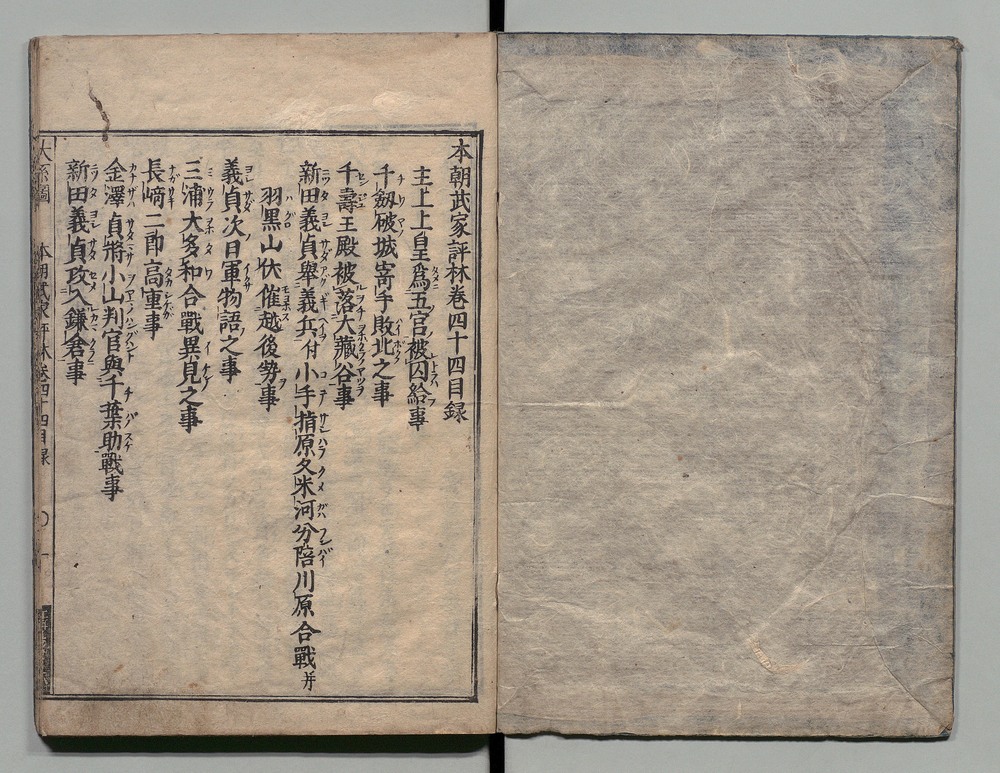 本朝武家評林巻四十四目録
主上上皇爲五宮被囚給事
千劔破城寄手敗北之事
千壽王殿被落大藏谷事
新田義貞擧義兵付小手指原久米河分陪川原合戰并
羽黒山伏催越後勢事
義貞次日軍物語之事
三浦大多和合戰異見之事
長﨑二郎高重事
金澤貞將小山判官與千葉助戰事
新田義貞攻入鎌倉事
大系圖 本朝武家評林巻四十四目录 〇 一